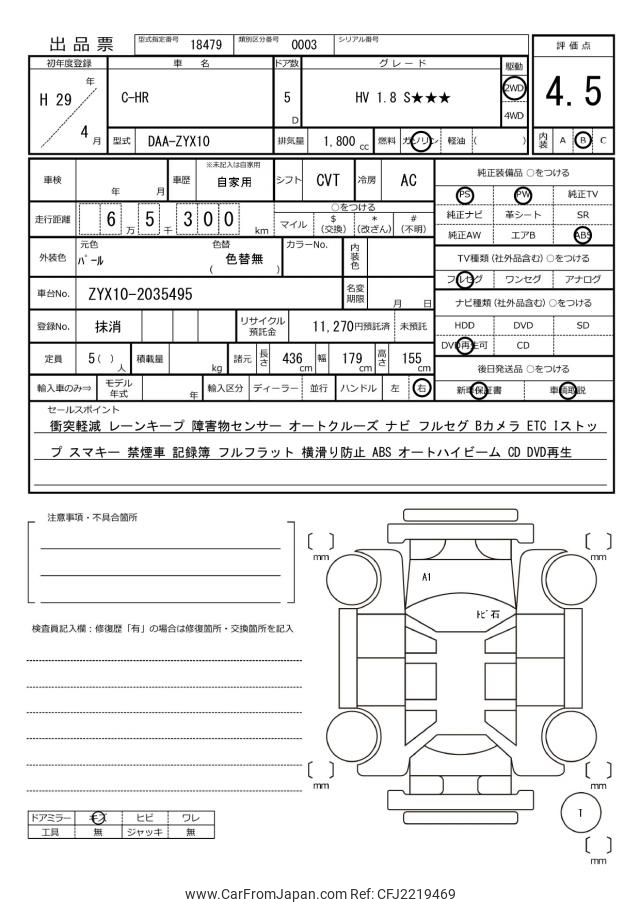 出品票 型式指定番号 18479 類別区分番号 0003 シリアル番号
評価点
4.5
内装 A B C
初年度登録 車名 ドア数 グレード 駆動
H 29 年 4 月
C-HR 5 D HV 1.8 S★★★ 2WD
4WD
型式 DAA-ZYX10 排気量 1,800 cc 燃料 ガソリン 軽油 ( )
車検 年 月 車歴 ※未記入は自家用 自家用 シフト CVT 冷房 AC
走行距離 6 万 5 千 3 0 0 km
○をつける
マイル $ (交換) * (改ざん) # (不明)
外装色 元色 パール 色替 ( 色替無 ) カラーNo. 内装色
車台No. ZYX10-2035495 名変期限 月 日
登録No. 抹消 リサイクル預託金 11,270円預託済 未預託
定員 5 ( ) 人 積載量 kg 諸元 長さ 436 cm 幅 179 cm 高さ 155 cm
輸入車のみ⇒ モデル年式 年 輸入区分 ディーラー 並行 ハンドル 左 右
純正装備品 ○をつける
PS PW 純正TV
純正ナビ 革シート SR
純正AW エアB ABS
TV種類 (社外品含む) ○をつける
フルセグ ワンセグ アナログ
ナビ種類 (社外品含む) ○をつける
HDD DVD SD
DVD再生可 CD
後日発送品 ○をつける
新車保証書 車輌取説
セールスポイント
衝突軽減 レーンキープ 障害物センサー オートクルーズ ナビ フルセグ Bカメラ ETC Iストッ
プ スマキー 禁煙車 記録簿 フルフラット 横滑り防止 ABS オートハイビーム CD DVD再生
注意事項・不具合箇所
検査員記入欄：修復歴「有」の場合は修復箇所・交換箇所を記入
ドアミラー キズ ヒビ ワレ
工具 無 ジャッキ 無
[ ] mm
[ ] mm
A1
トビ石
[ ] mm
[ ] mm
T
[ ] mm
www.CarFromJapan.com Ref: CFJ2219469